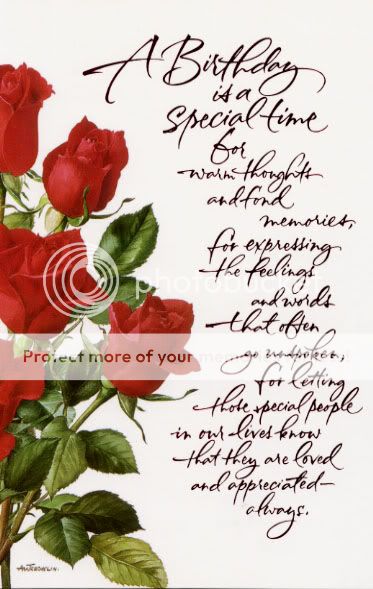 A Birthday
is a
special time
for
warm thoughts
and fond
memories,
for expressing
the feelings
and words
that often
photobucket
Protect more of your memories
go unspoken,
for letting
those special people
in our lives know
that they are loved
and appreciated—
always.